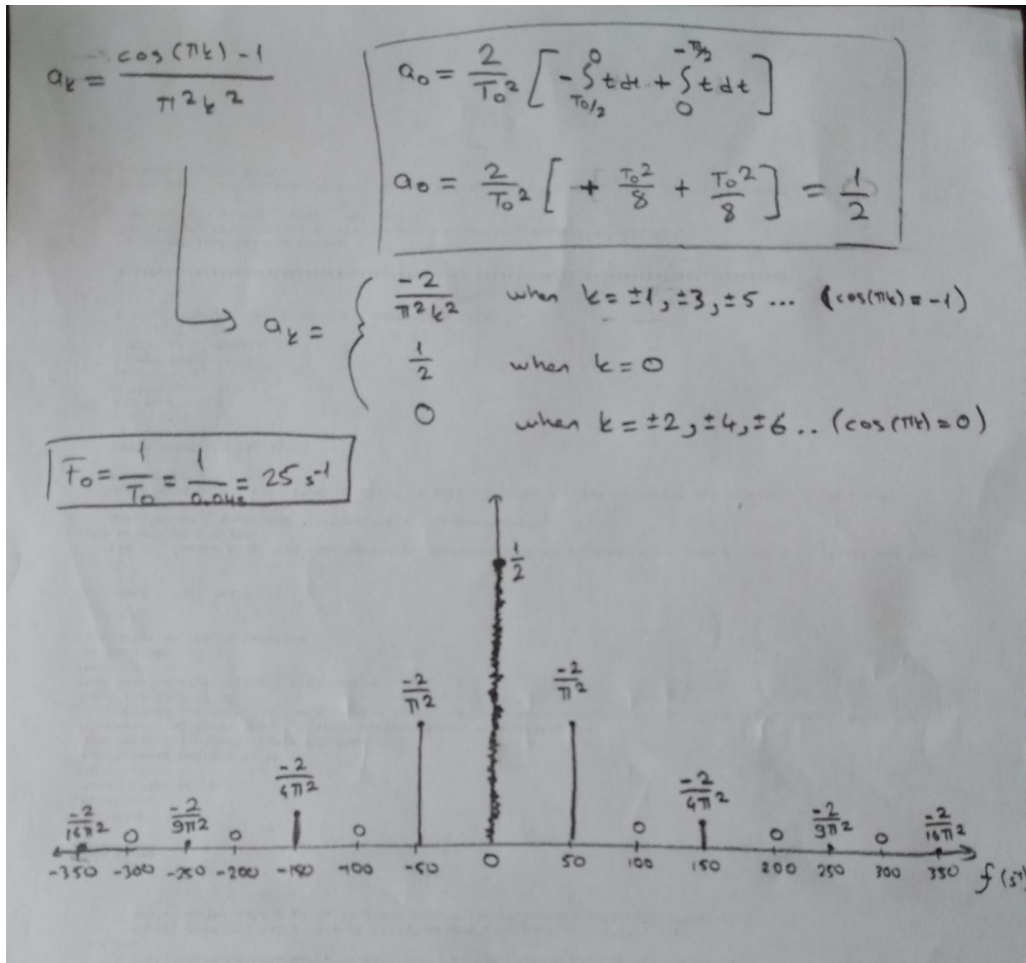 aₖ = cos(πk) - 1 / π²k²
a₀ = 2/T₀² [ - ∫_{T₀/2}^{0} t dt + ∫_{0}^{-T₀/2} t dt ]
a₀ = 2/T₀² [ + T₀²/8 + T₀²/8 ] = 1/2
aₖ = { -2/π²k² when k = ±1, ±3, ±5 ... (cos(πk) = -1)
1/2 when k = 0
0 when k = ±2, ±4, ±6 .. (cos(πk) = 0)
F₀ = 1/T₀ = 1/0.04s = 25 s⁻¹
1/2
-2/π² -2/π²
-2/4π² -2/4π²
-2/16π² 0 -2/9π² 0 0 0 0 -2/9π² 0 -2/16π²
-350 -300 -250 -200 -150 -100 -50 0 50 100 150 200 250 300 350 f (s⁻¹)